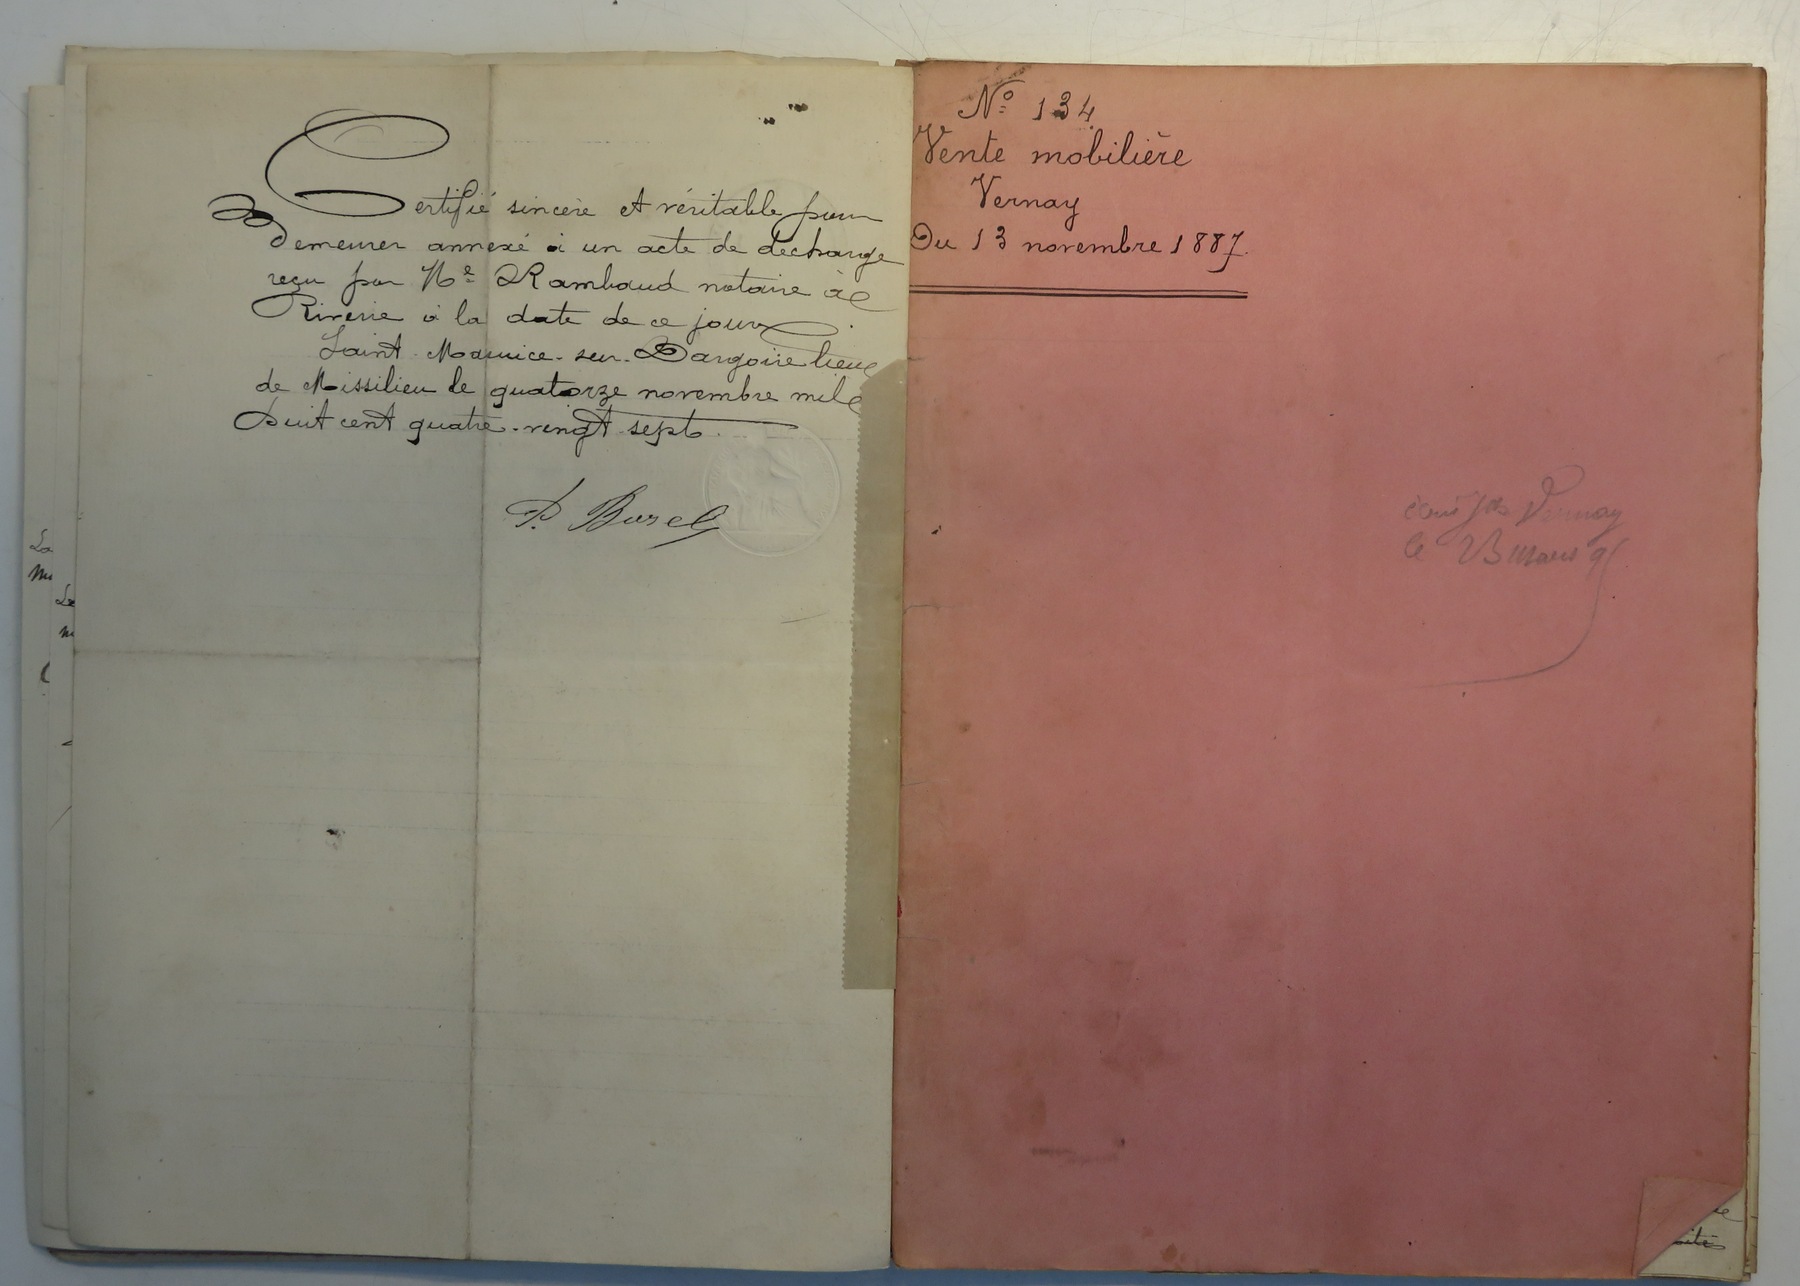 Certifié sincère et véritable pour
demeurer annexé à un acte de décharge
reçu par Me Rambaud notaire à
Riverie à la date de ce jour.
Saint-Maurice-sur-Dargoire lieu
de Missilieu le quatorze novembre mil
huit cent quatre-vingt sept.
P. Burel
No 134
Vente mobilière
Vernay
Du 13 novembre 1887.
Vernay
le 23 mars